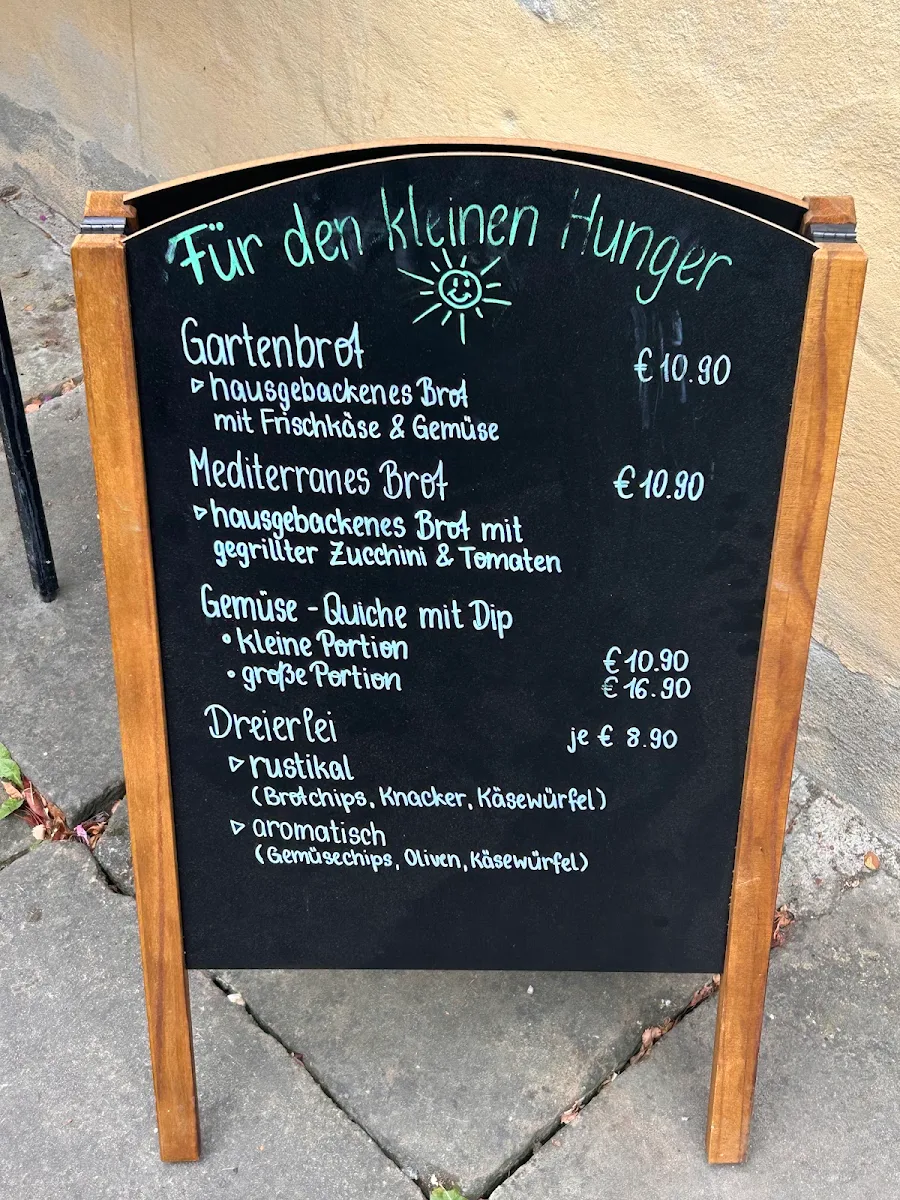 Für den kleinen Hunger
Gartenbrot € 10.90
▹ hausgebackenes Brot
mit Frischkäse & Gemüse
Mediterranes Brot € 10.90
▹ hausgebackenes Brot mit
gegrillter Zucchini & Tomaten
Gemüse - Quiche mit Dip
• kleine Portion € 10.90
• große Portion € 16.90
Dreierlei je € 8.90
▹ rustikal
(Brotchips, Knacker, Käsewürfel)
▹ aromatisch
(Gemüsechips, Oliven, Käsewürfel)